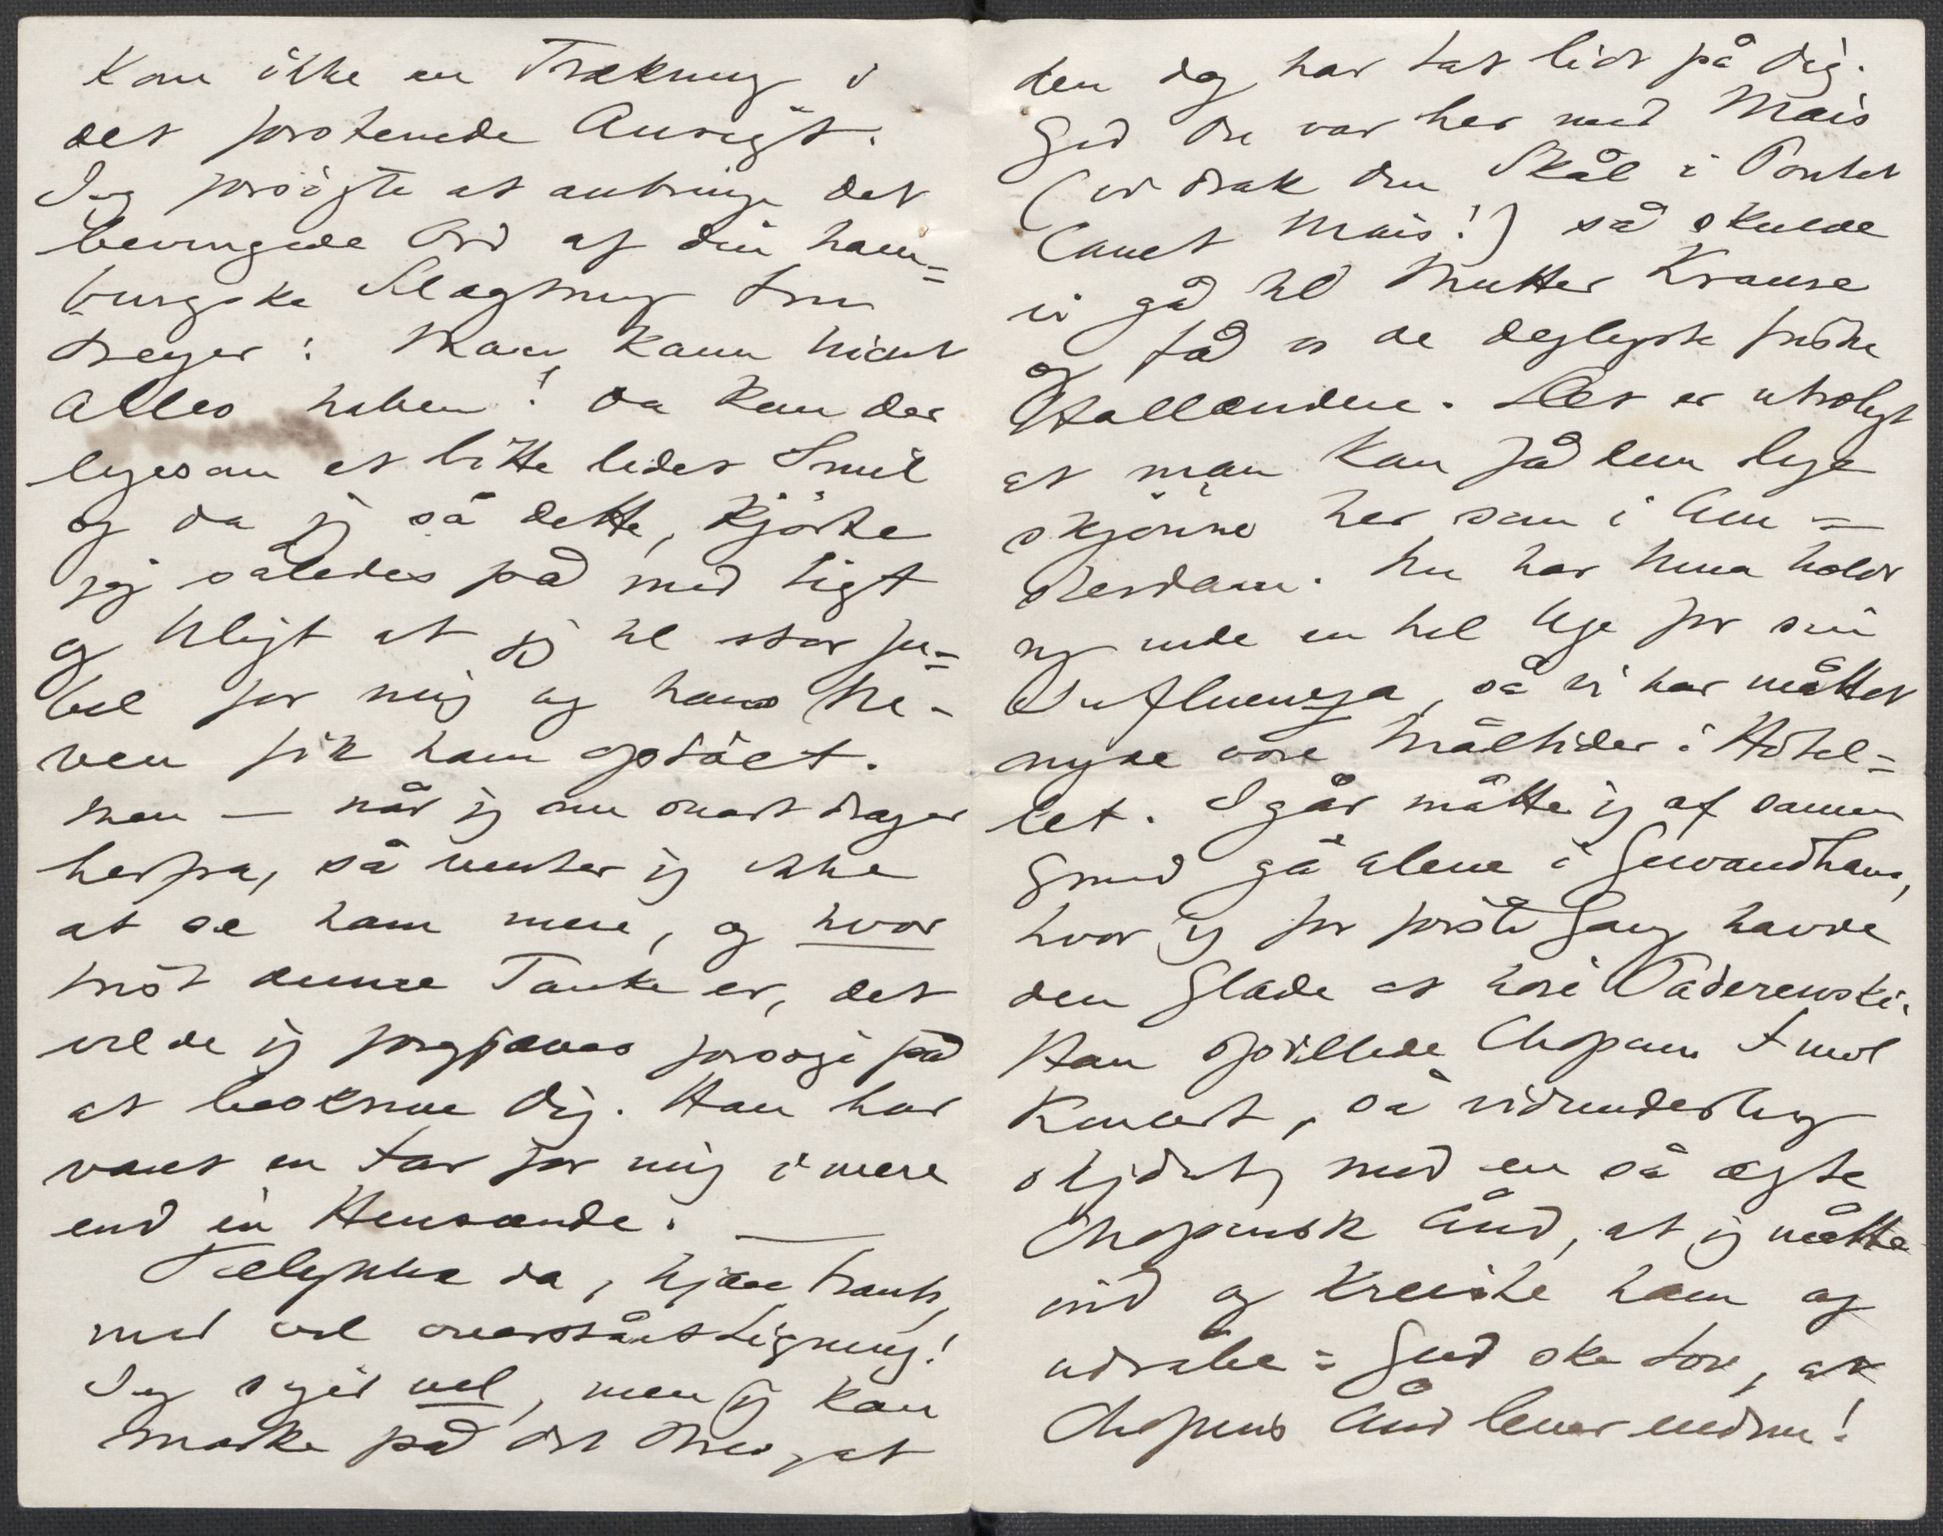 Kom ikke en Trækning i
det forstenede Ansigt.
Jeg forsøgte at anbringe det
bevingede Ord af din ham=
burgske Slægtning Fru
Dreyer: Man kann nicht
alles haben! Da kom der
ligesom et bitte lidet Smil
og da jeg så dette, kjørte
jeg således på med Sligt
og Uligt at jeg til stor Ju=
bel for mig og hans Ne-
veu fik ham optøet.
Men — når jeg nu snart drager
herfra, så venter jeg ikke
at se ham mere, og hvor
trist denne Tanke er, det
vilde jeg forgjæves forsøge på
at beskrive Dig. Han har
været en Far for mig i mere
end én Henseende. —
Tillykke da, kjære Frants,
med vel overstået Ligning!
Jeg siger vel, men jeg kan
mærke på dit Brev, at
den dog har tat lidt på Dig.
Gid Du var her med Mais
(vi drak din Skål i Pontet
Canet Mais!) så skulde
vi gå til Mutter Krause
og få os de dejligste friske
Hollændere. Det er utroligt
at man kan få dem lige
skjønne her som i Am=
sterdam. Nu har Nina holdt
sig inde en hel Uge for sin
Influenza, så vi har måttet
nyde vore Måltider i Hotel=
let. Igår måtte jeg af samme
Grund gå alene i Gewandhaus,
hvor jeg for første Gang havde
den Glæde at høre Paderewski.
Han spillede Chopins F mol
Koncert, så vidunderlig
skjønt, med en så ægte
Chopinsk Ånd, at jeg måtte
ind og kreiste ham og
udråbe: Gud ske Lov, at
Chopins Ånd lever endnu!